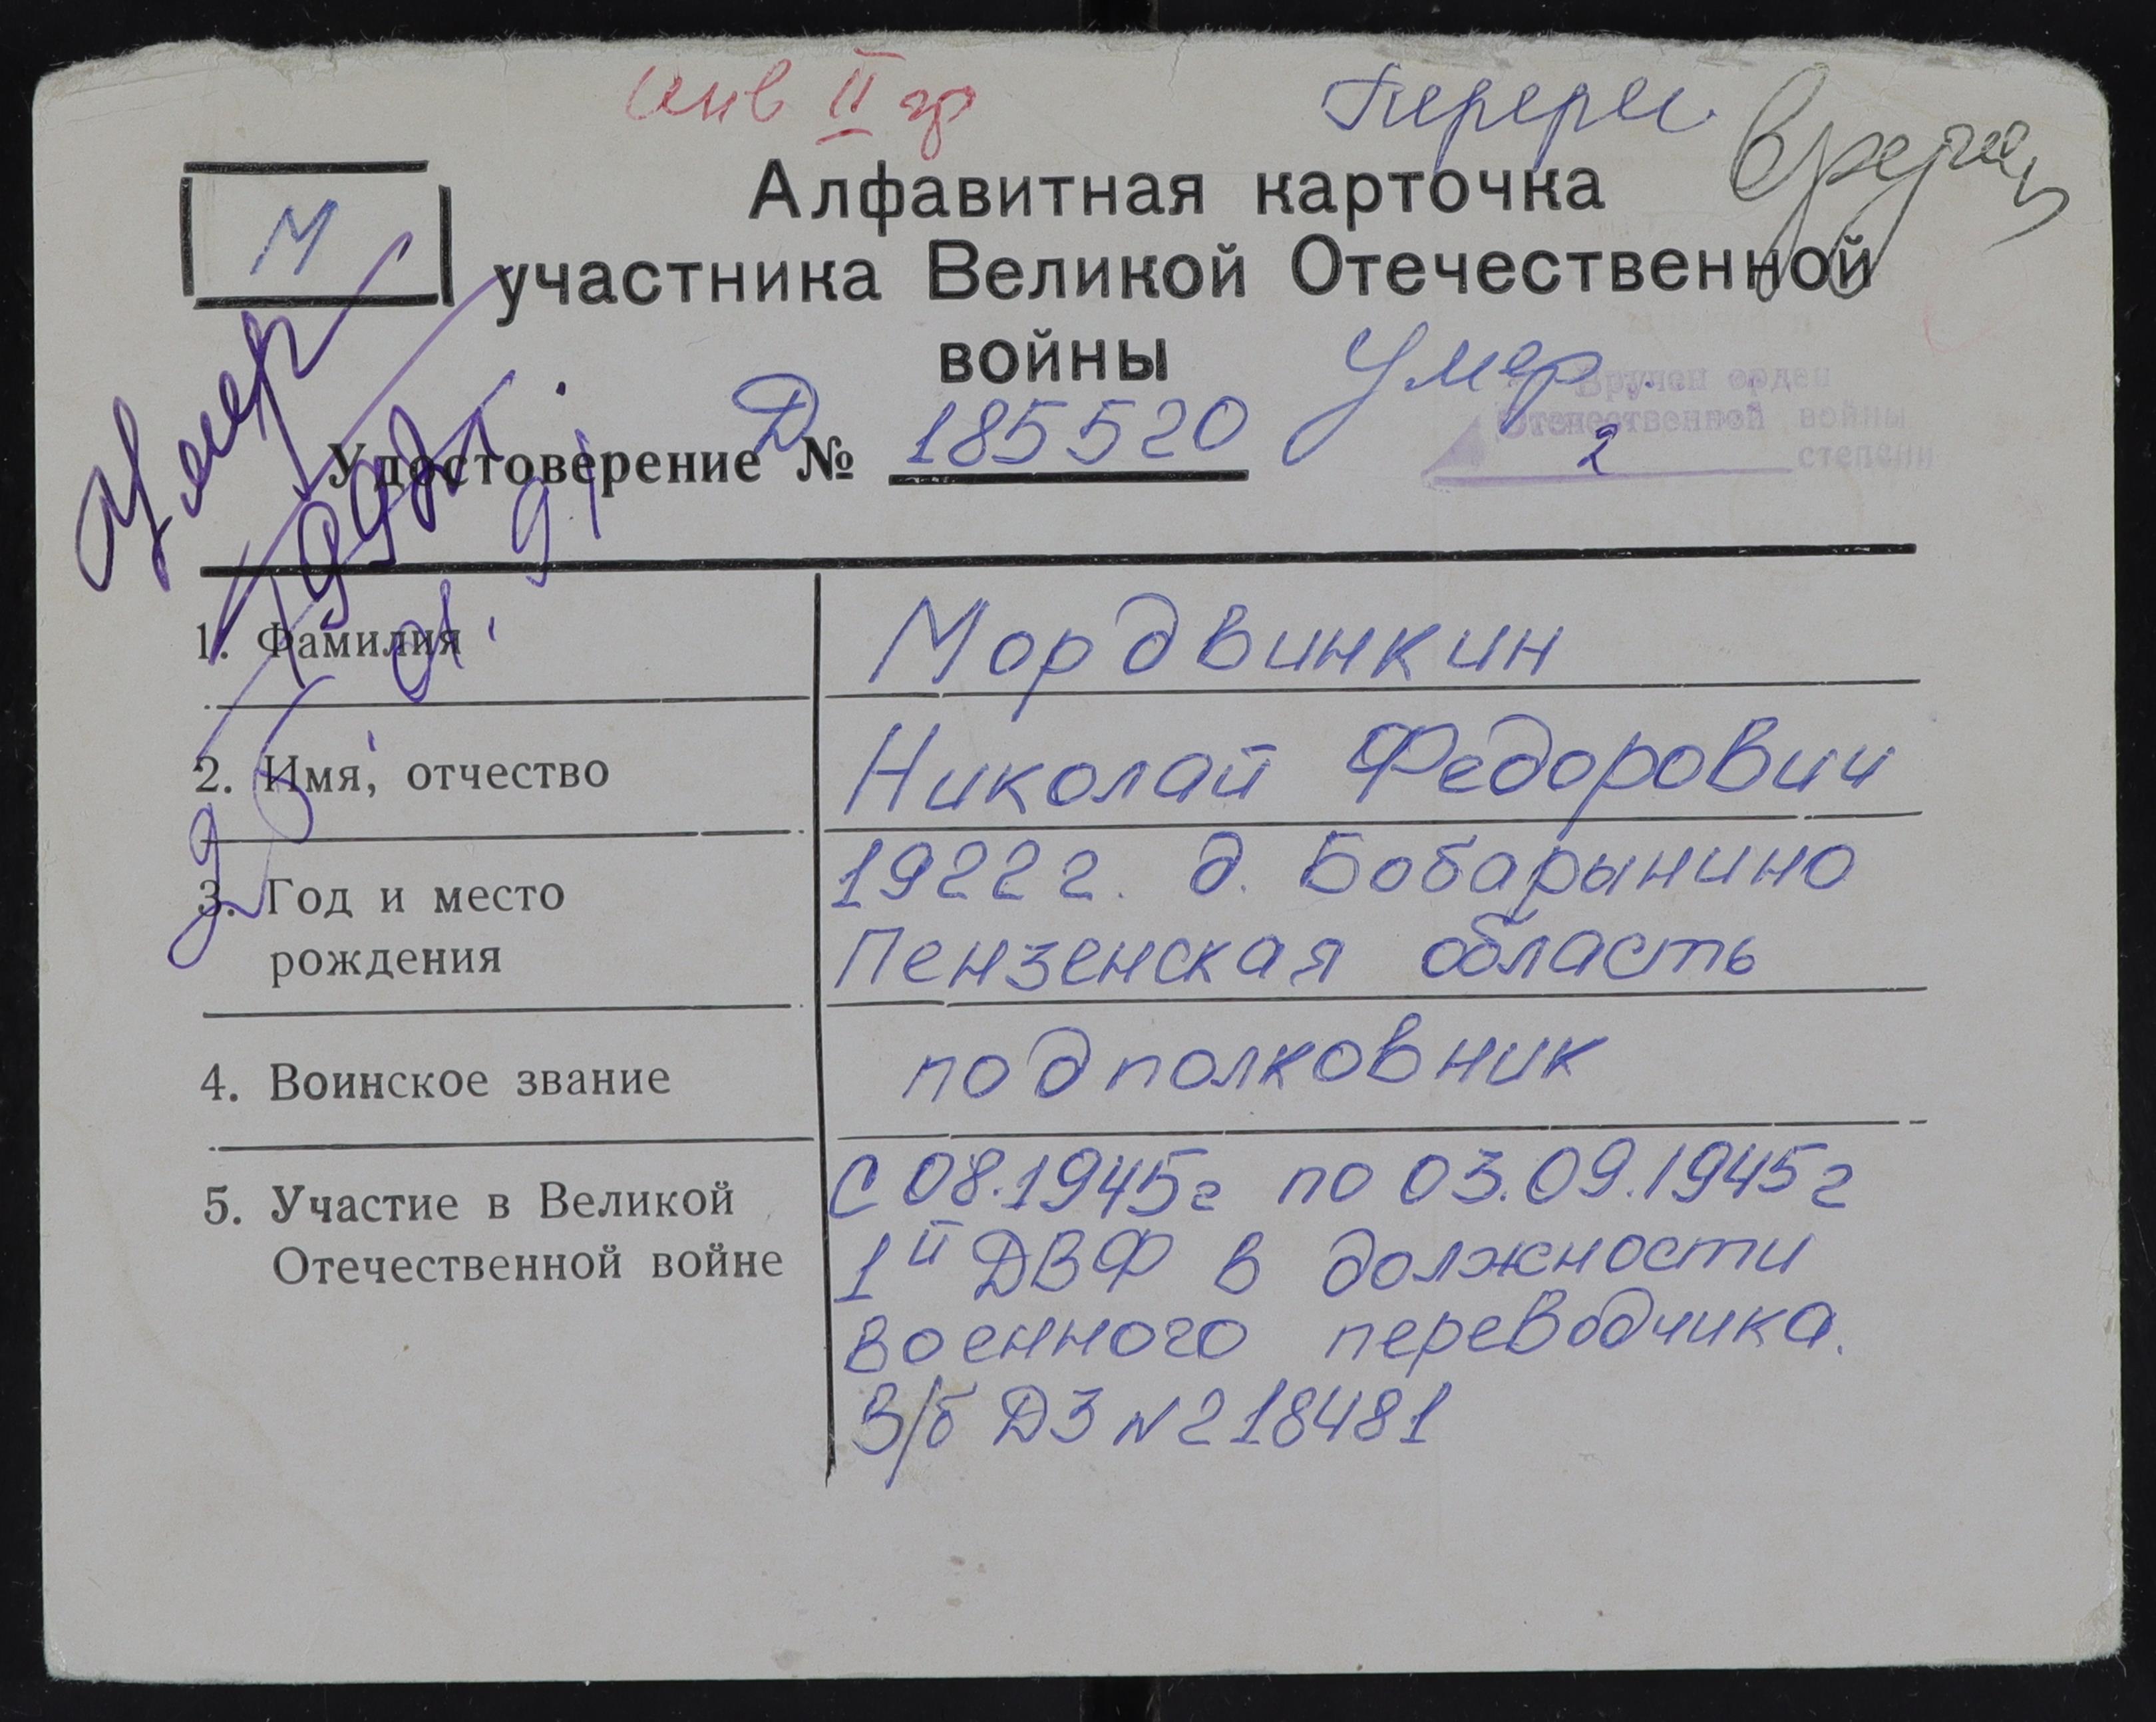 инв II гр
М
Алфавитная карточка
участника Великой Отечественной
войны
Умер
Умер
Вручен орден
Отечественной войны
2 степени
Удостоверение Д № 185520
1. Фамилия Мордвинкин
2. Имя, отчество Николай Федорович
3. Год и место рождения 1922 г. д. Бобарынино
Пензенская область
4. Воинское звание подполковник
5. Участие в Великой Отечественной войне с 08.1945г по 03.09.1945г
1й ДВФ в должности
военного переводчика.
В/б ДЗ N 218481